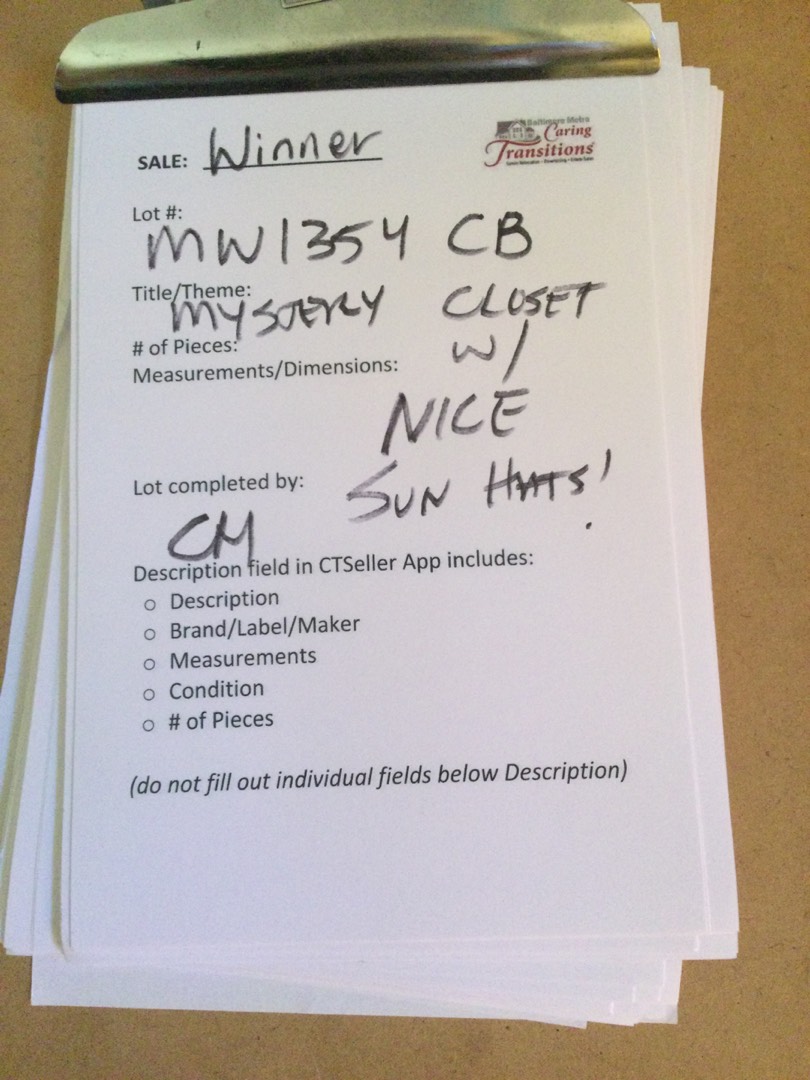 Baltimore Metro
Caring
Transitions
SALE: Winner
Lot #:
MW1354 CB
Title/Theme:
MYSTERY CLOSET
# of Pieces:
W/
Measurements/Dimensions:
NICE
Lot completed by:
SUN HATS!
CM
Description field in CTSeller App includes:
o Description
o Brand/Label/Maker
o Measurements
o Condition
o # of Pieces
(do not fill out individual fields below Description)